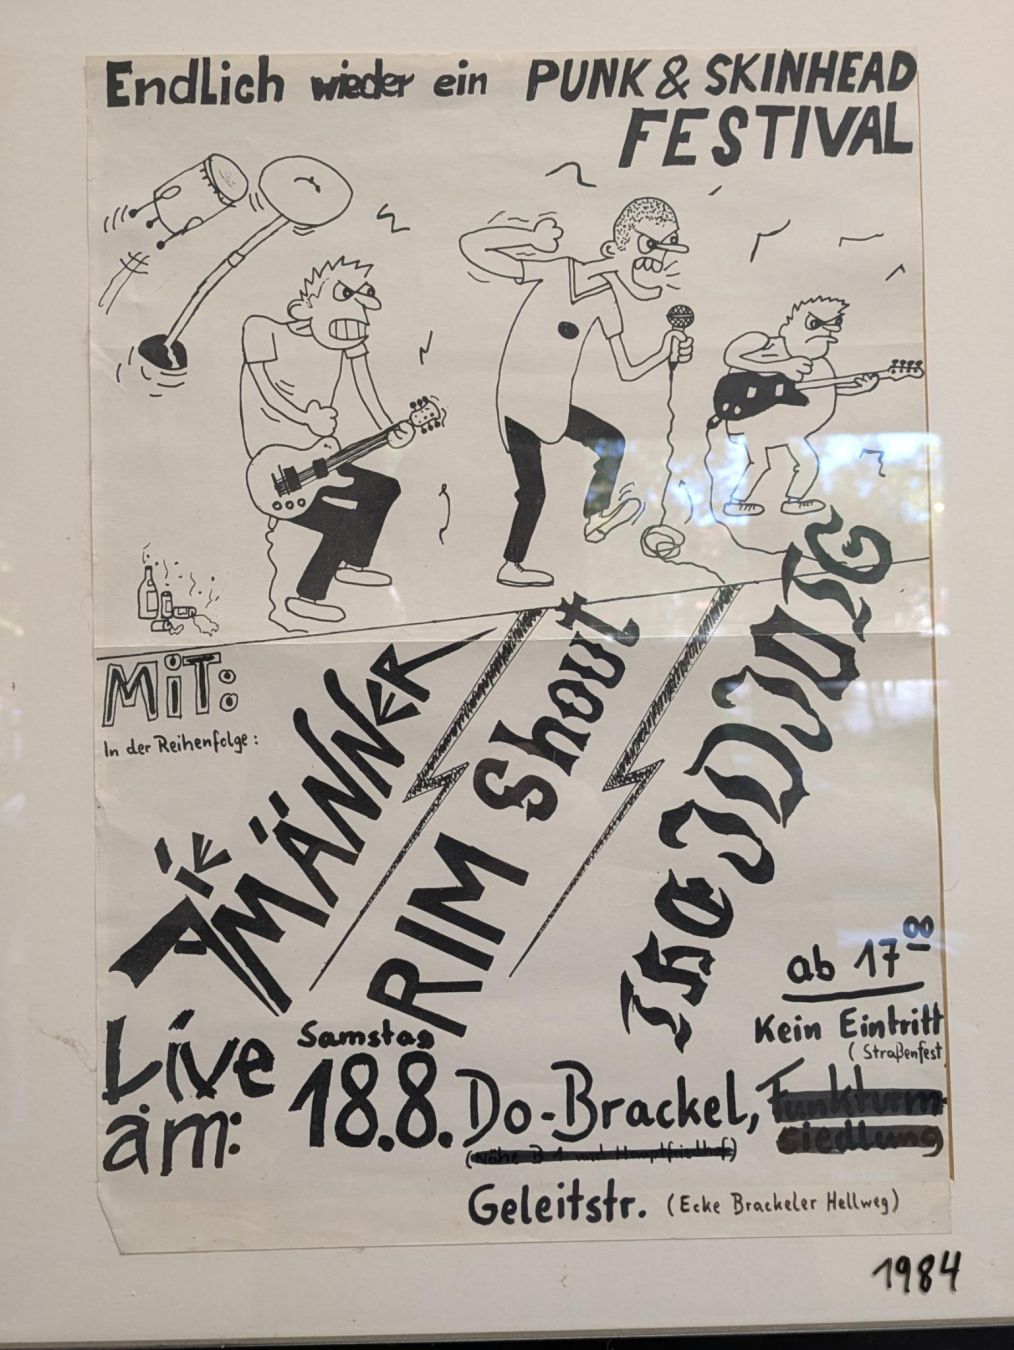 Endlich wieder ein PUNK & SKINHEAD
FESTIVAL
MiT:
In der Reihenfolge:
MÄNNER
RIM Shout
The IDIOTS
ab 17 00
Kein Eintritt
(Straßenfest
Live
am:
Samstag
18.8. Do-Brackel, Funkturm-
siedlung
(Nähe B1 und Hauptfriedhof)
Geleitstr. (Ecke Brackeler Hellweg)
1984